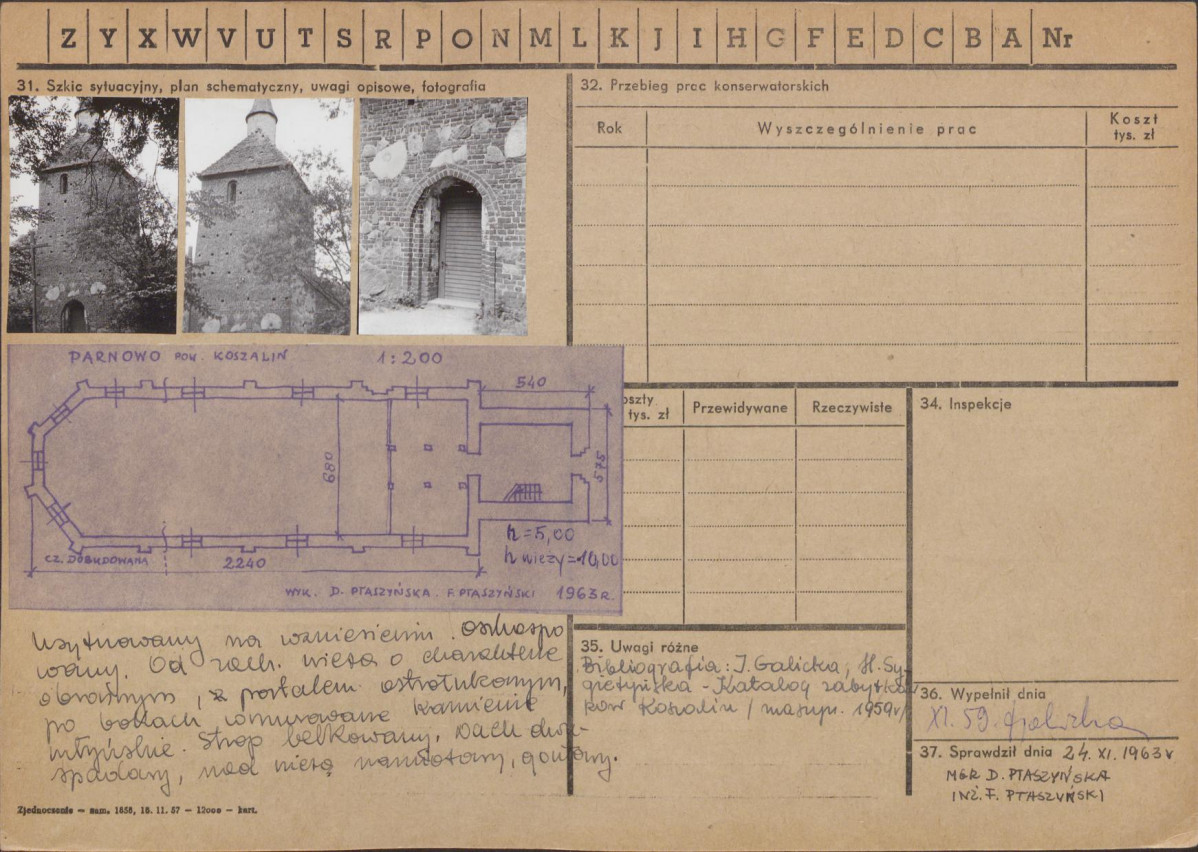 Z Y X W V U T S R P O N M L K J I H G F E D C B A Nr
31. Szkic sytuacyjny, plan schematyczny, uwagi opisowe, fotografia
PARNOWO POW. KOSZALIN 1:200
540
680
575
h = 5,00
h wieży = 10,00
CZ. DOBUDOWANA
2240
WYK. D. PTASZYŃSKA. F. PTASZYŃSKI 1963 R.
Usytuowany na wzniesieniu. oszkarpo
wany. Od zach. wieża o charakterze
obronnym, z portalem ostrołukowym,
po bokach wmurowane kamienie
młyńskie. Strop belkowany. Dach dwu-
spadowy, nad wieżą namiotowy, gontowy.
Zjednoczenie — zam. 1858, 16. 11. 57 — 12000 — kart.
32. Przebieg prac konserwatorskich
Rok Wyszczególnienie prac Koszt
tys. zł
oszty
tys. zł Przewidywane Rzeczywiste
34. Inspekcje
35. Uwagi różne
Bibliografia: I. Galicka, H. Sy-
gietyńska - Katalog zabytków
pow Koszalin / maszyp. 1959 r/
36. Wypełnił dnia
XI. 59. Galicka
37. Sprawdził dnia 24. XI. 1963 r
MGR D. PTASZYŃSKA
INŻ. F. PTASZYŃSKI